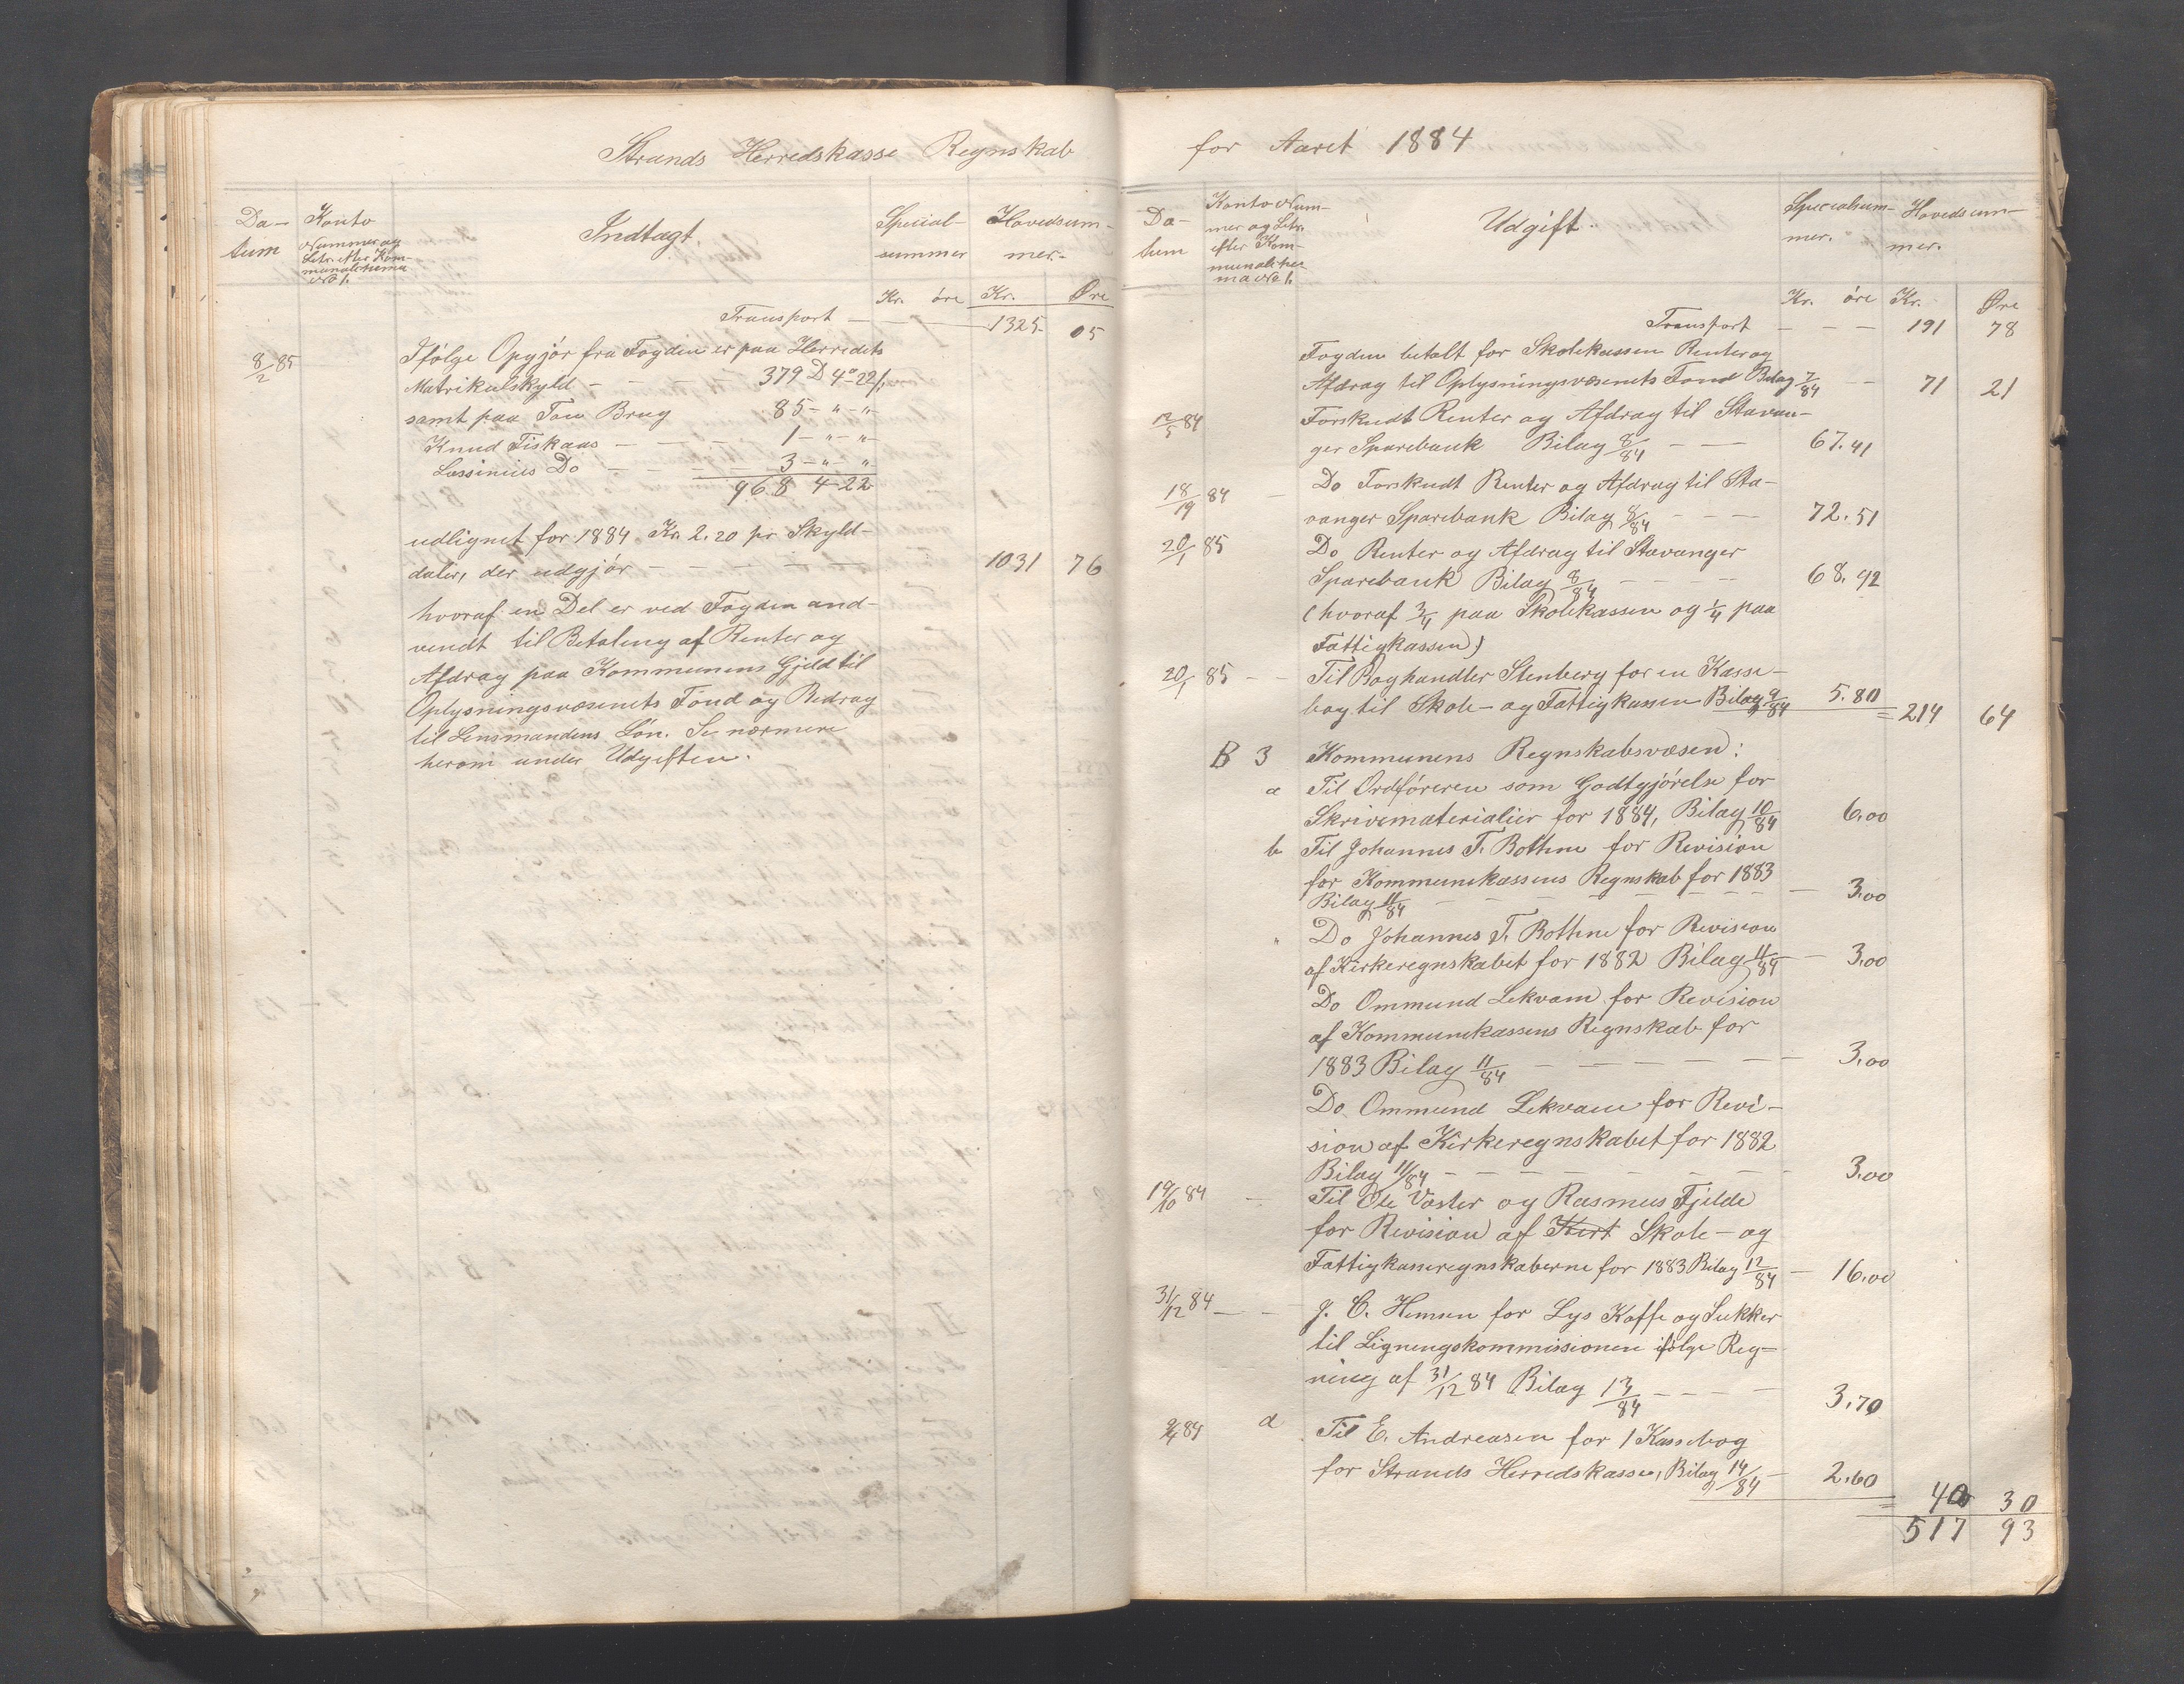 Strands Herredskasse Regnskab
Da-
tum
Konto
Nummer og
Letr. efter Kom-
munalskema
No 1.
Indtægt.
Special-
summer
Hovedsum-
mer.
Kr. øre Kr. Øre
Transport — 1325 05
8/2 85 Ifølge Opgjør fra Fogden er paa Herredets
Matrikulskyld - - 379 D 4 22
samt paa Tou Brug 85 - " - "
Knud Fiskaas - - 1 - " - "
Lassinius Do - - 3 - " - "
968 4 22
udlignet for 1884 Kr. 2.20 pr Skyld-
daler, der udgjør - - - 1031 76
hvoraf en Del er ved Fogden and-
vendt til Betaling af Renter og
Afdrag paa Kommunens Gjeld til
Oplysningsvæsenets Fond og Bidrag
til Lensmandens Løn. Se nærmere
herom under Udgiften.
for Aaret 1884
Da-
tum
Konto Num-
mer og Letr.
efter Kom-
munalske-
ma No 1.
Udgift.
Specialsum-
mer.
Hovedsum-
mer.
Kr. øre Kr. Øre
Transport - - - 191 78
Fogden betalt for Skolekassen Renter og
Afdrag til Oplysningsvæsenets Fond Bilag 7/84 - - 71 21
12/5 84 Forskudt Renter og Afdrag til Stavan-
ger Sparebank Bilag 8/84 - - 67.41
18/19 84 - Do Forskudt Renter og Afdrag til Sta-
vanger Sparebank Bilag 8/84 - - - 72.51
20/1 85 Do Renter og Afdrag til Stavanger
Sparebank Bilag 8/84 - - - 68.92
(hvoraf 3/4 paa Skolekassen og 1/4 paa
Fattigkassen)
20/1 85 - - Til Boghandler Stenberg for en Kasse-
bog til Skole- og Fattigkassen Bilag 9/84 5.80 = 214 64
B 3 Kommunens Regnskabsvæsen:
a Til Ordføreren som Godtgjørelse for
Skrivematerialier for 1884, Bilag 10/84 6,00
b Til Johannes T. Bothne for Revision
for Kommunekassens Regnskab for 1883
Bilag 11/84 - - - 3,00
" Do Johannes T. Bothne for Revision
af Kirkeregnskabet for 1882 Bilag 11/84 - 3,00
Do Ommund Lekvam for Revision
af Kommunekassens Regnskab for
1883 Bilag 11/84 - - - 3,00
Do Ommund Lekvam for Revi-
sion af Kirkeregnskabet for 1882
Bilag 11/84 - - - 3,00
19/10 84 - Til Ole Voster og Rasmus Fjelde
for Revision af Kirt Skole- og
Fattigkasseregnskaberne for 1883 Bilag 12/84 - 16,00
31/12 84 - - J. C. Hemsen for Lys Kaffe og Sukker
til Ligningskommissionen ifølge Reg-
ning af 31/12 84 Bilag 13/84 - - - 3,70
84 d Til E. Andreasen for 1 Kassebog
for Strands Herredskasse, Bilag 14/84 - 2,60
= 40 30
517 93